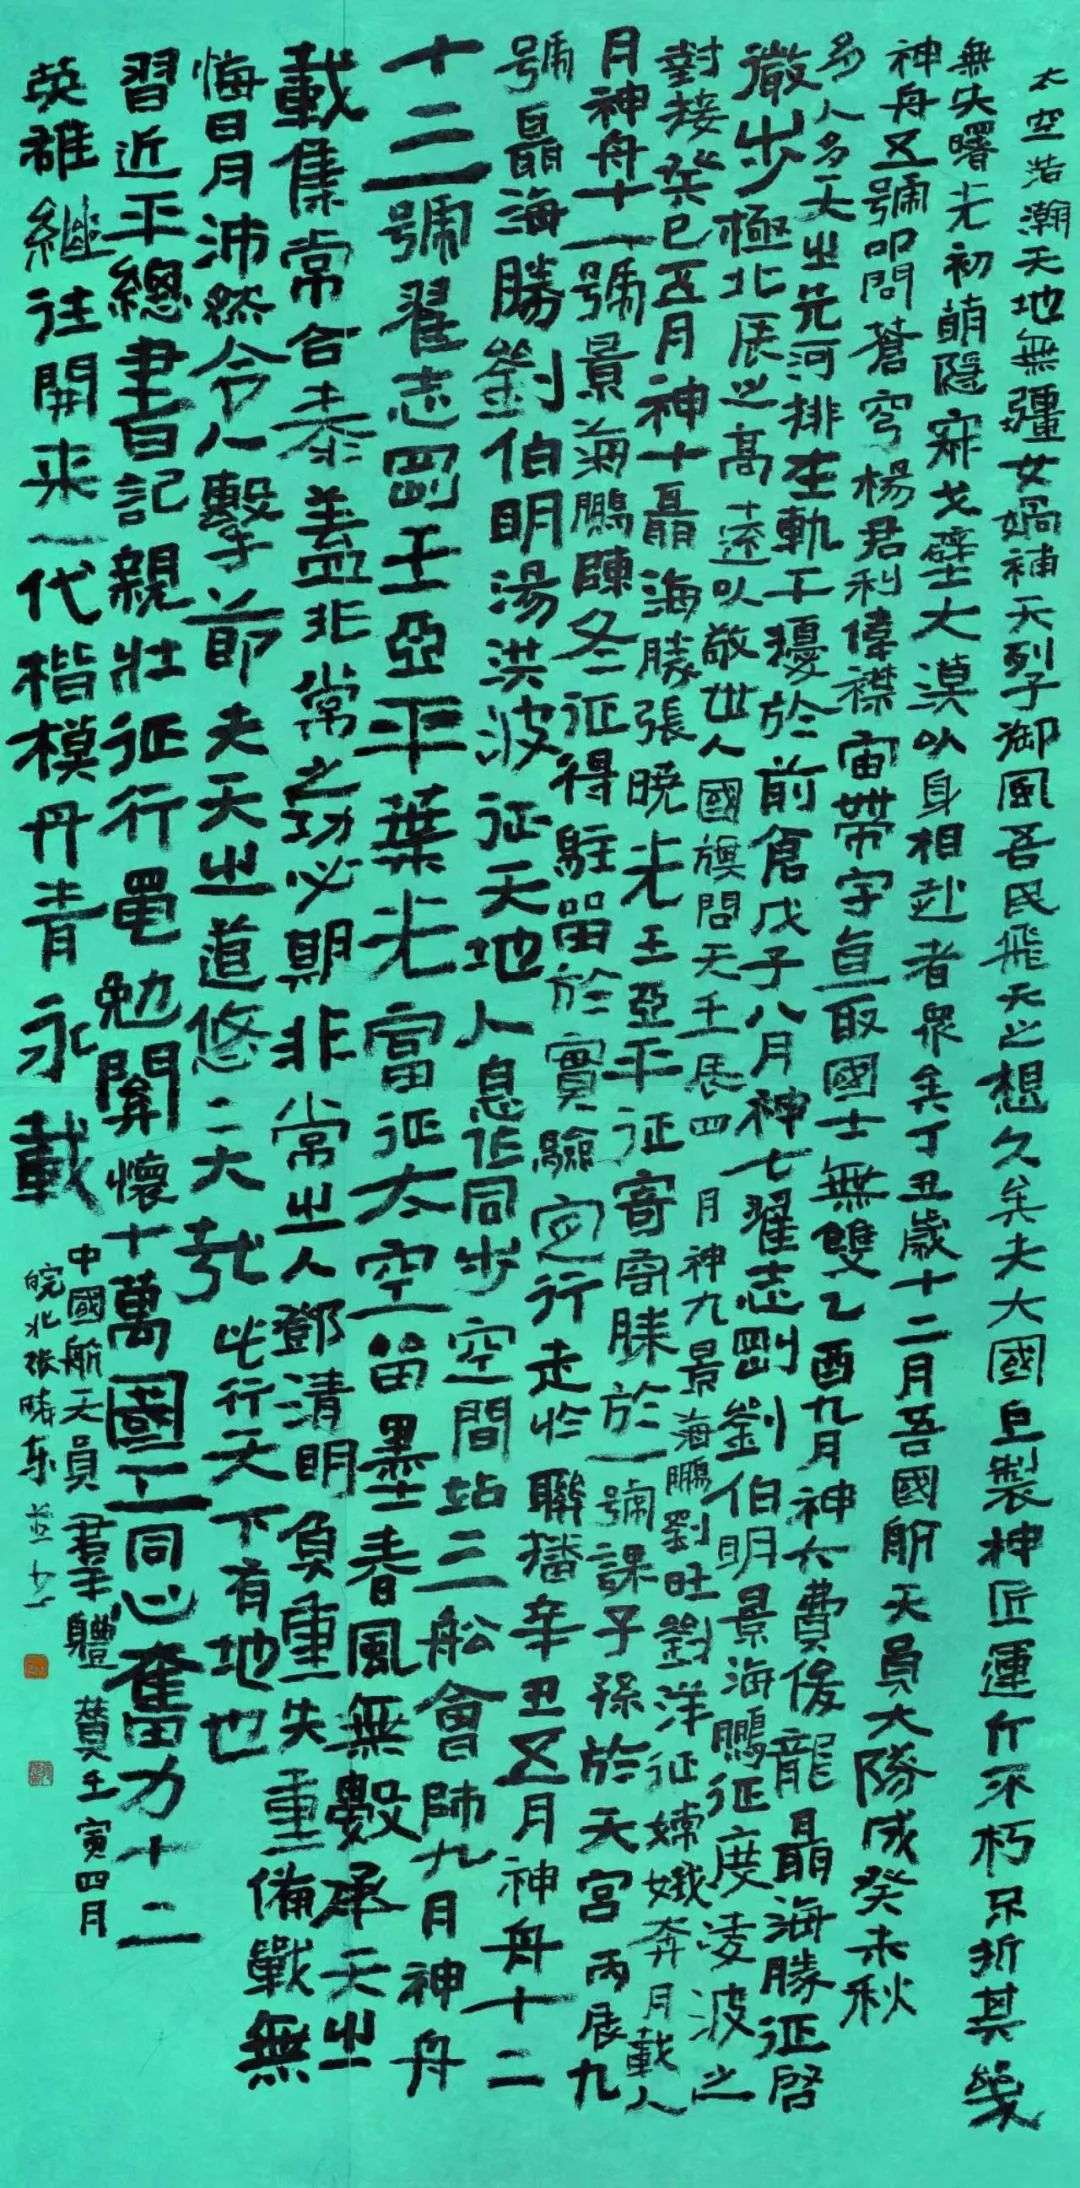 太空浩瀚天地無疆女媧補天列子御風吾民飛天之想久矣夫大國巨製神匠運斤不朽不折其幾
無失曙光初萌隱寐戈壁大漠以身相赴者衆矣丁丑歲十二月吾國航天員大隊成癸未秋
神舟五號叩問蒼穹楊君利偉襟宙帶宇直取國士無雙乙酉九月神六費俊龍聶海勝征啓
多人多天出先河排在軌干擾於前倉戊子八月神七翟志剛劉伯明景海鵬征度凌波之
微步極北辰之高遠以敬世人國旗問天壬辰四月神九景海鵬劉旺劉洋征嫦娥奔月載人
對接癸巳五月神十聶海勝張曉光王亞平征寄商賺於一號課子孫於天宮丙辰九
月神舟十一號景海鵬陳冬征得駐留於實驗室行走於聯播辛丑五月神舟十二
號聶海勝劉伯明湯洪波征天地人息作同步空間站三船會師九月神舟
十三號翟志剛王亞平葉光富征太空留墨春風無數承天出
載集常合泰蓋非常之功必期非常出人鄧清明負重失重備戰無
悔日月沛然令人擊節夫天出道悠二大哉此行天下有地也
習近平總書百記親壯征行黽勉關懷十萬國工同心奮力十二
英雄繼往開來一代楷模丹青永載
中國航天員群羊體贊壬寅四月
皖北張曉東並書